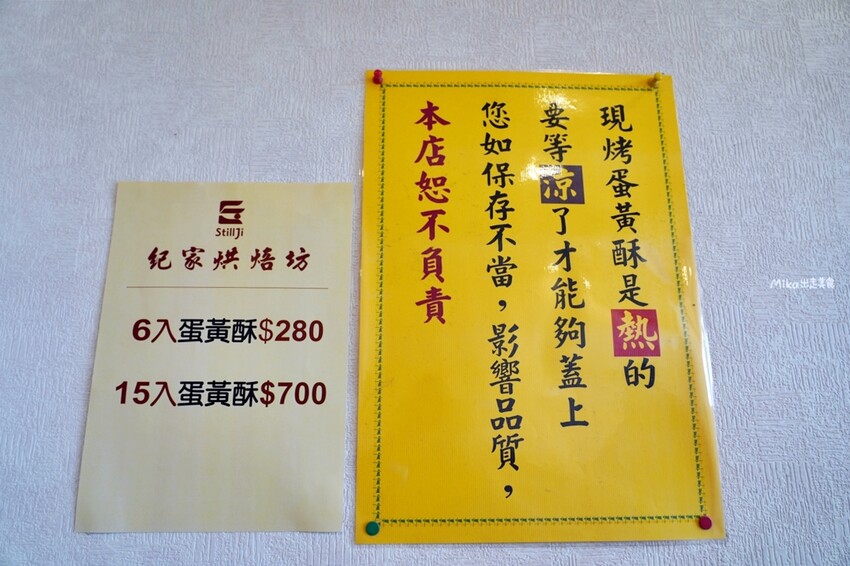 StillJi
紀家烘焙坊
6入蛋黃酥$280
15入蛋黃酥$700
現烤蛋黃酥是熱的
要等涼了才能夠蓋上
您如保存不當，影響品質，
本店恕不負責
Mika出走美食